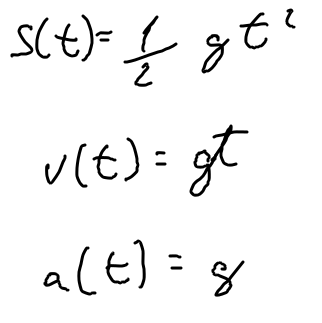 S(t)= 1/2 gt²
v(t) = gt
a(t) = g